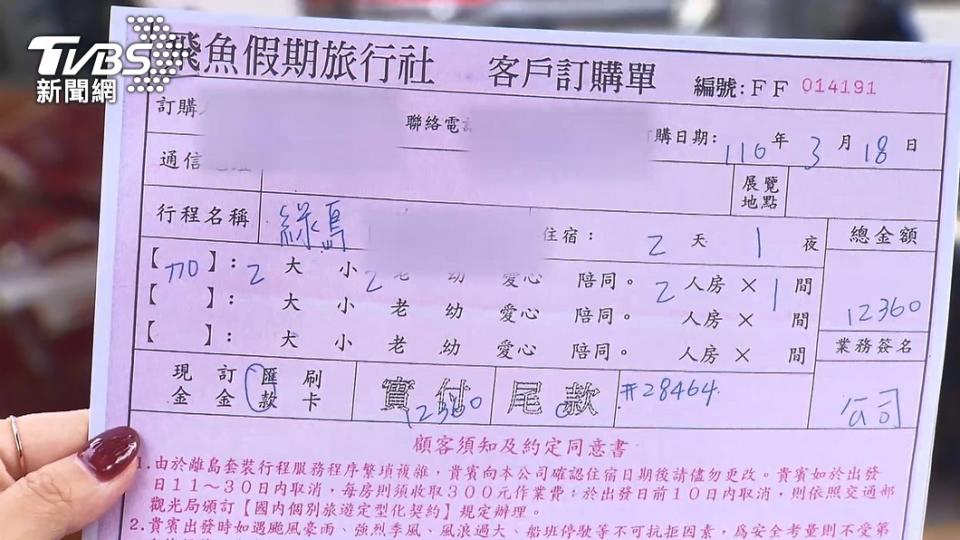 TVBS
新聞網
飛魚假期旅行社 客戶訂購單 編號:FF 014191
訂購 聯絡電話 訂購日期: 110 年 3 月 18 日
通信
展覽
地點
行程名稱 綠島 住宿: 2 天 1 夜 總金額
】: 2 大 小 2 老 幼 愛心 陪同。 2 人房 × 1 間
【 】: 大 小 老 幼 愛心 陪同。 人房 × 間 12360
【 】: 大 小 老 幼 愛心 陪同。 人房 × 間 業務簽名
現金 訂金 匯款 刷卡 實付 12360 尾款 0 #28464 公司
顧客須知及約定同意書
1.由於離島套裝行程服務程序繁瑣複雜,貴賓向本公司確認住宿日期後請儘勿更改。貴賓如於出發
日11~30日內取消,每房則須收取300元作業費;於出發日前10日內取消,則依照交通部
觀光局頒訂【國內個別旅遊定型化契約】規定辦理。
2.貴賓出發時如遇颱風豪雨、強烈季風、風浪過大、船班停駛等不可抗拒因素,為安全考量則不受第